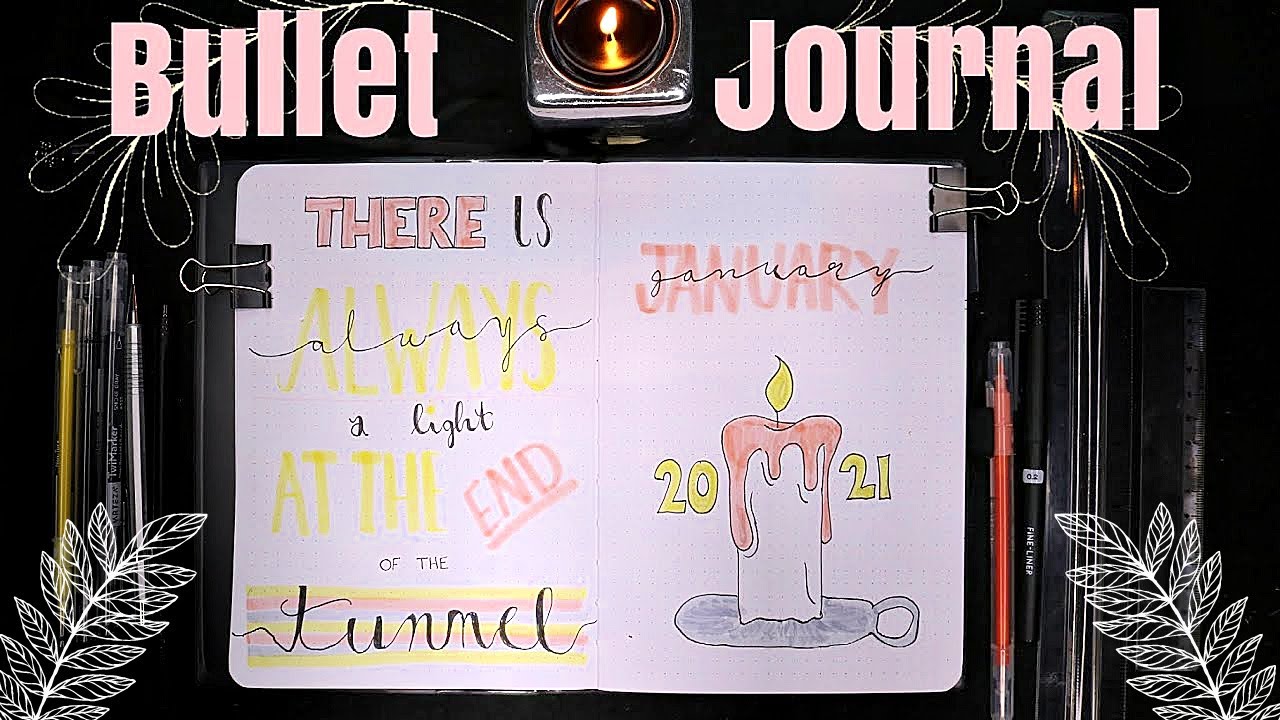 Bullet Journal
THERE IS
ALWAYS
always
a light
AT THE END
OF THE
tunnel
JANUARY
january
20 21
TwiMarker
ARTEZA
0.2
FINE-LINER